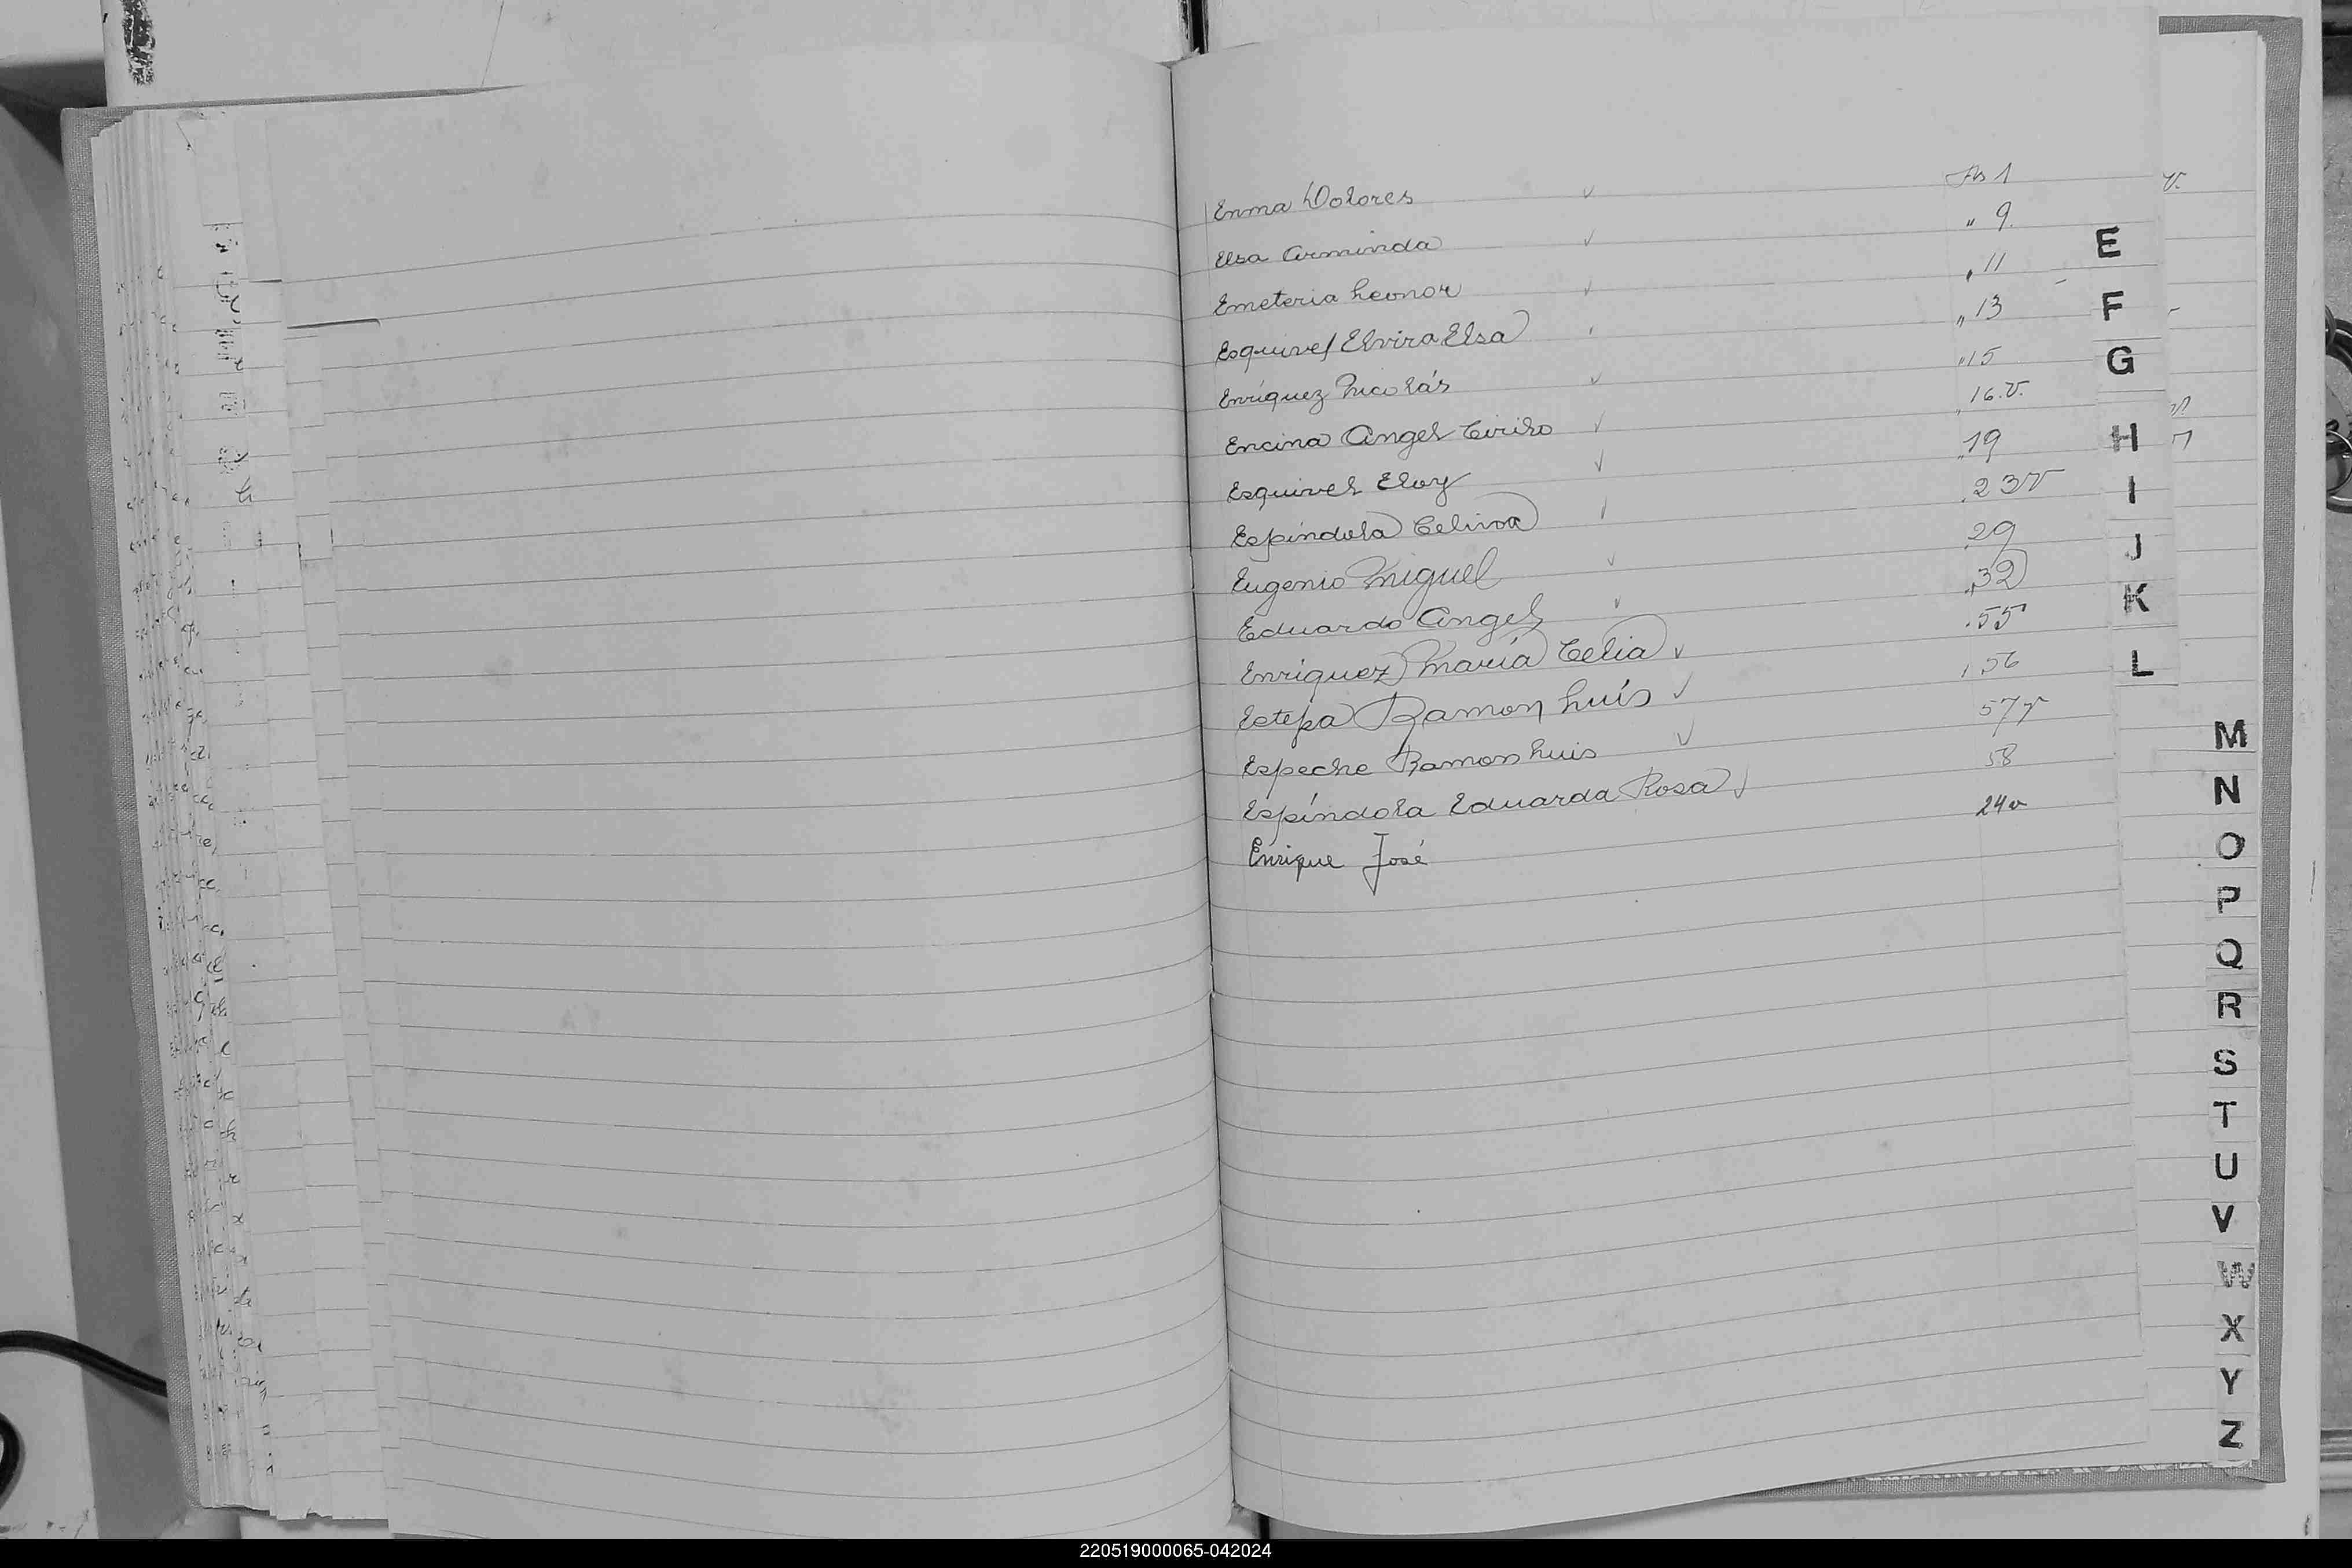 Enma Dolores fs 1
Elsa Arminda " 9.
Emeteria Leonor " 11
Esquivel Elvira Elsa " 13
Enríquez Nicolás " 15
Encina Angel Cirilo " 16.v.
Esquivel Eloy " 19
Espíndola Celina " 23v
Eugenio Miguel 29
Eduardo Angel " 32
Enríquez María Celia " 55
Estepa Ramon Luís " 56
Espeche Ramon Luis 57v
Espíndola Eduarda Rosa 58
Enrique José 24v
E
F
G
H
I
J
K
L
M
N
O
P
Q
R
S
T
U
V
W
X
Y
Z
220519000065-042024